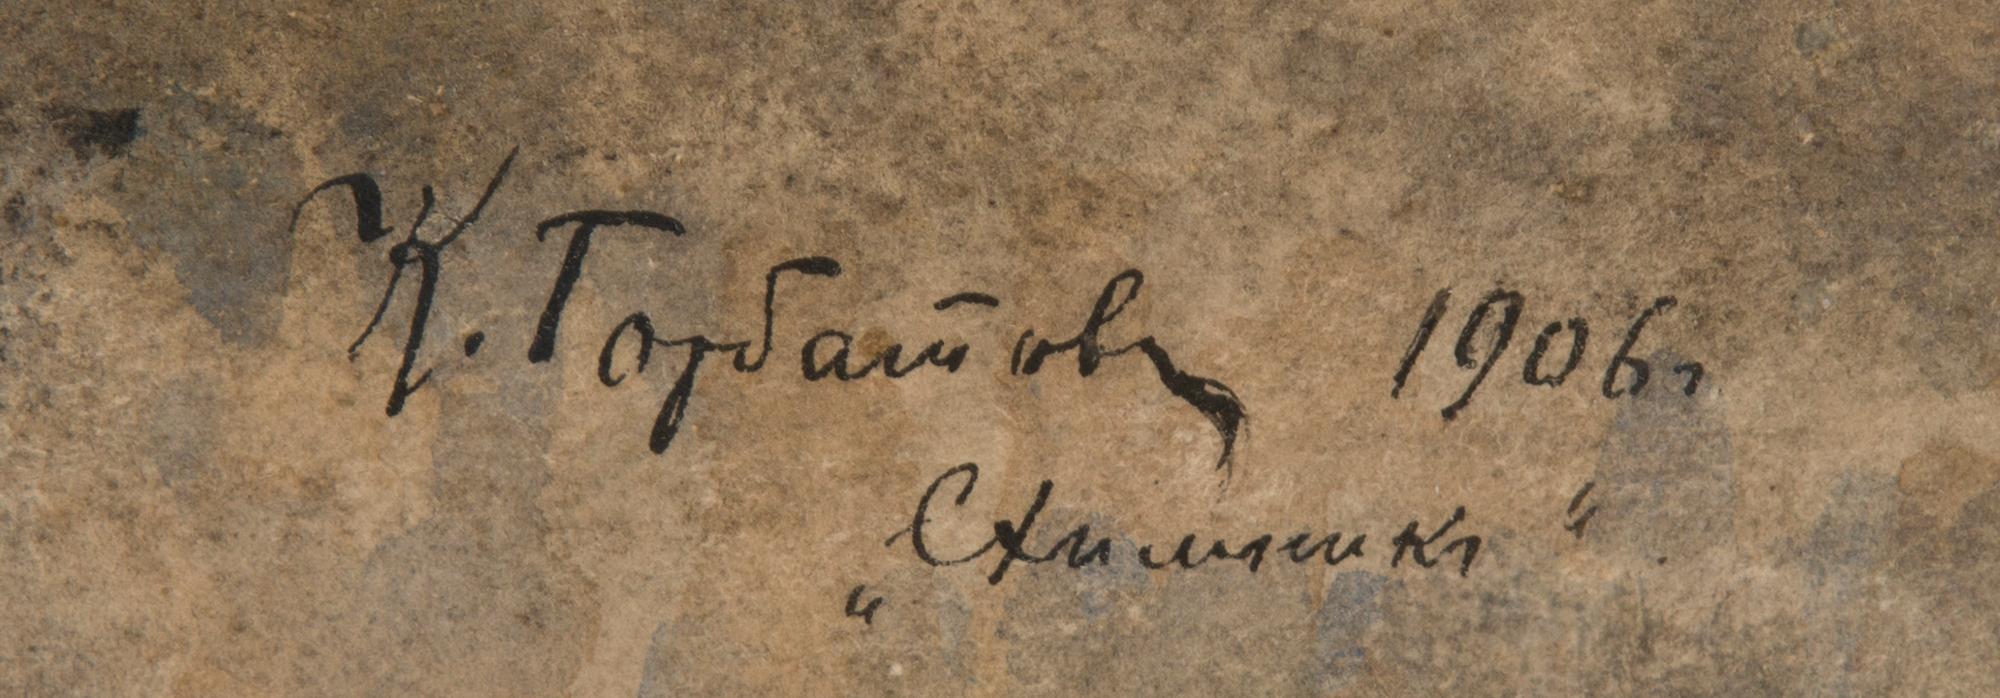 К. Горбатовъ 1906 г
„Схимникъ“